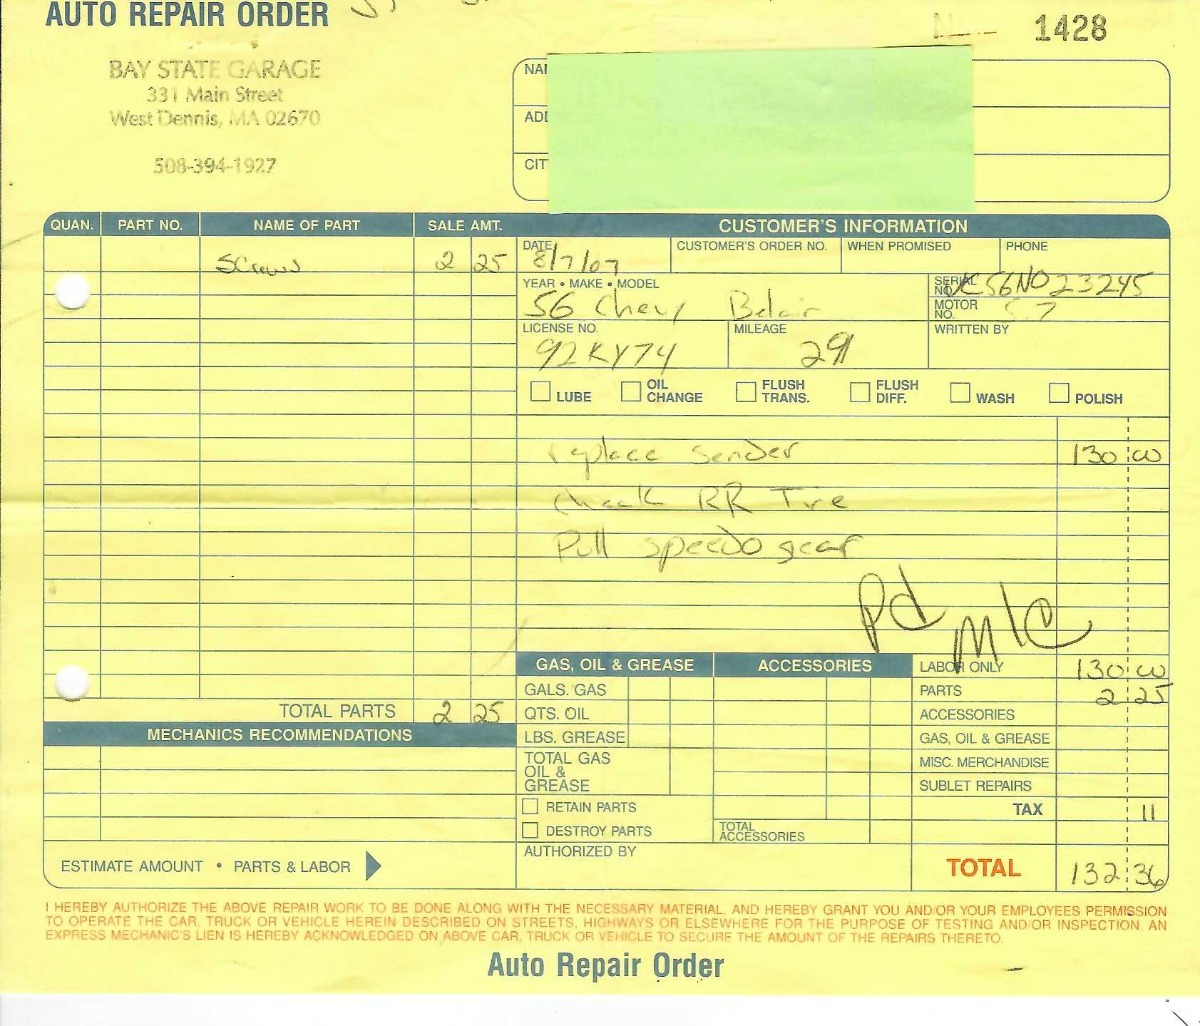 AUTO REPAIR ORDER
1428
BAY STATE GARAGE
331 Main Street
West Dennis, MA 02670
508-394-1927
NAM
ADD
CIT
QUAN. PART NO. NAME OF PART SALE AMT. CUSTOMER'S INFORMATION
DATE 8/7/07 CUSTOMER'S ORDER NO. WHEN PROMISED PHONE
Screws 2 25
YEAR • MAKE • MODEL SERIAL NO. VC56N023245
56 Chevy Belair MOTOR NO. 5.7
LICENSE NO. MILEAGE WRITTEN BY
92KY74 291
LUBE OIL CHANGE FLUSH TRANS. FLUSH DIFF. WASH POLISH
replace Sender 130 00
Check RR Tire
Pull speedo gear
Pd M/C
GAS, OIL & GREASE ACCESSORIES LABOR ONLY 130 00
GALS. GAS PARTS 2 25
TOTAL PARTS 2 25 QTS. OIL ACCESSORIES
MECHANICS RECOMMENDATIONS LBS. GREASE GAS, OIL & GREASE
TOTAL GAS OIL & GREASE MISC. MERCHANDISE
SUBLET REPAIRS
RETAIN PARTS TAX 11
DESTROY PARTS TOTAL ACCESSORIES
AUTHORIZED BY
ESTIMATE AMOUNT • PARTS & LABOR TOTAL 132 36
I HEREBY AUTHORIZE THE ABOVE REPAIR WORK TO BE DONE ALONG WITH THE NECESSARY MATERIAL, AND HEREBY GRANT YOU AND/OR YOUR EMPLOYEES PERMISSION
TO OPERATE THE CAR, TRUCK OR VEHICLE HEREIN DESCRIBED ON STREETS, HIGHWAYS OR ELSEWHERE FOR THE PURPOSE OF TESTING AND/OR INSPECTION. AN
EXPRESS MECHANIC'S LIEN IS HEREBY ACKNOWLEDGED ON ABOVE CAR, TRUCK OR VEHICLE TO SECURE THE AMOUNT OF THE REPAIRS THERETO.
Auto Repair Order